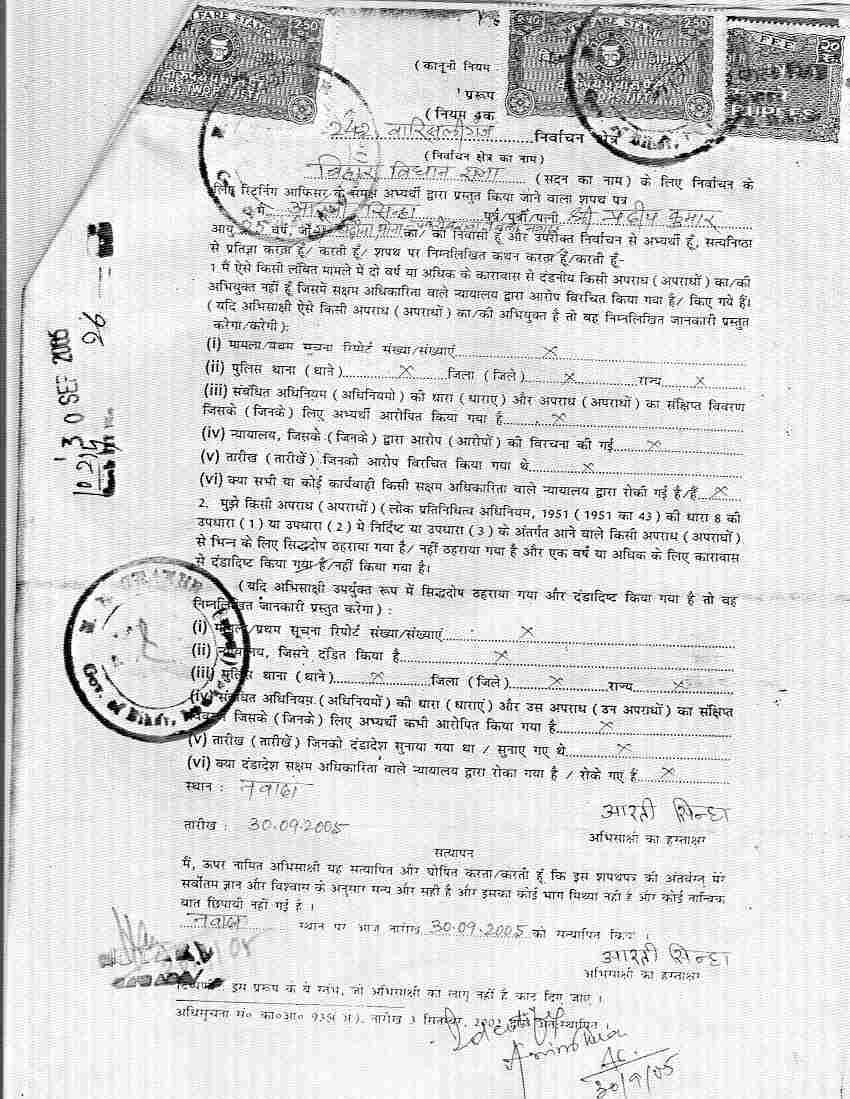 WELFARE STAMP
2.50
(कानूनी नियम
प्रारूप
(नियम
242 वारिसलीगंज निर्वाचन क्षेत्र
(निर्वाचन क्षेत्र का नाम)
बिहार विधान सभा (सदन का नाम) के लिए निर्वाचन के
लिए रिटर्निंग आफिसर के समक्ष अभ्यर्थी द्वारा प्रस्तुत किया जाने वाला शपथ पत्र
मैं आरती सिन्हा पुत्र/पुत्री/पत्नी श्री प्रदीप कुमार
आयु 25 वर्ष, जो का/ की निवासी हूँ और उपरोक्त निर्वाचन से अभ्यर्थी हूँ, सत्यनिष्ठा
से प्रतिज्ञा करता हूँ/ करती हूँ/ शपथ पर निम्नलिखित कथन करता हूँ/करती हूँ:-
1 मैं ऐसे किसी लंबित मामले में दो वर्ष या अधिक के कारावास से दंडनीय किसी अपराध (अपराधों) का/की
अभियुक्त नहीं हूँ जिसमें सक्षम अधिकारिता वाले न्यायालय द्वारा आरोप विरचित किया गया है/ किए गये हैं।
(यदि अभिसाक्षी ऐसे किसी अपराध (अपराधों) का/की अभियुक्त है तो वह निम्नलिखित जानकारी प्रस्तुत
करेगा/करेगी):
(i) मामला/प्रथम सूचना रिपोर्ट संख्या/संख्याएं x
(ii) पुलिस थाना (थाने) x जिला (जिले) x राज्य x
(iii) संबंधित अधिनियम (अधिनियमों) की धारा (धाराएं) और अपराध (अपराधों) का संक्षिप्त विवरण
जिसके (जिनके) लिए अभ्यर्थी आरोपित किया गया है x
(iv) न्यायालय, जिसके (जिनके) द्वारा आरोप (आरोपों) की विरचना की गई x
(v) तारीख (तारीखें) जिनको आरोप विरचित किया गया थे x
(vi) क्या सभी या कोई कार्यवाही किसी सक्षम अधिकारिता वाले न्यायालय द्वारा रोकी गई है/हैं x
2. मुझे किसी अपराध (अपराधों) (लोक प्रतिनिधित्व अधिनियम, 1951 (1951 का 43) की धारा 8 की
उपधारा (1) या उपधारा (2) मे निर्दिष्ट या उपधारा (3) के अंतर्गत आने वाले किसी अपराध (अपराधों)
से भिन्न के लिए सिद्धदोष ठहराया गया है/ नहीं ठहराया गया है और एक वर्ष या अधिक के लिए कारावास
से दंडादिष्ट किया गया है/नहीं किया गया है।
(यदि अभिसाक्षी उपर्युक्त रूप में सिद्धदोष ठहराया गया और दंडादिष्ट किया गया है तो वह
निम्नलिखित जानकारी प्रस्तुत करेगा):
(i) मामला/प्रथम सूचना रिपोर्ट संख्या/संख्याएं x
(ii) न्यायालय, जिसने दंडित किया है x
(iii) पुलिस थाना (थाने) x जिला (जिले) x राज्य x
(iv) संबंधित अधिनियम (अधिनियमों) की धारा (धाराएं) और उस अपराध (उन अपराधों) का संक्षिप्त
विवरण जिसके (जिनके) लिए अभ्यर्थी कभी आरोपित किया गया है x
(v) तारीख (तारीखें) जिनको दंडादेश सुनाया गया था / सुनाए गए थे x
(vi) क्या दंडादेश सक्षम अधिकारिता वाले न्यायालय द्वारा रोका गया है / रोके गए हैं x
स्थान: नवादा
आरती सिन्हा
तारीख: 30.09.2005
अभिसाक्षी का हस्ताक्षर
सत्यापन
मैं, ऊपर नामित अभिसाक्षी यह सत्यापित और घोषित करता/करती हूँ कि इस शपथपत्र की अंतर्वस्तु मेरे
सर्वोत्तम ज्ञान और विश्वास के अनुसार सत्य और सही है और इसका कोई भाग मिथ्या नही है और कोई तात्विक
बात छिपायी नहीं गई है।
नवादा स्थान पर आज तारीख 30.09.2005 को सत्यापित किया।
आरती सिन्हा
अभिसाक्षी का हस्ताक्षर
टिप्पणी: इस प्ररूप के वे स्तंभ, जो अभिसाक्षी को लागू नहीं है काट दिए जाएं।
अधिसूचना सं० का०आ० 935(अ), तारीख 3 सितम्बर, 2002 द्वारा अंतःस्थापित
30/9/05
30 SEP 2005
26